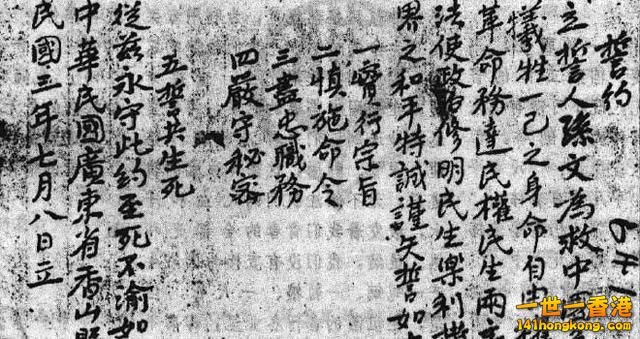 誓约
立誓人孫文為救中
犧牲一己之身命自由
革命務達民權民生兩
法使政治修明民生樂利
界之和平特誠謹矢誓如
一實行宗旨
二慎施命令
三盡忠職務
四嚴守秘密
五誓共生死
從茲永守此約至死不渝如
中華民國廣東省香山縣
民國三年七月八日立
641
一世一香港
141hongkong.com